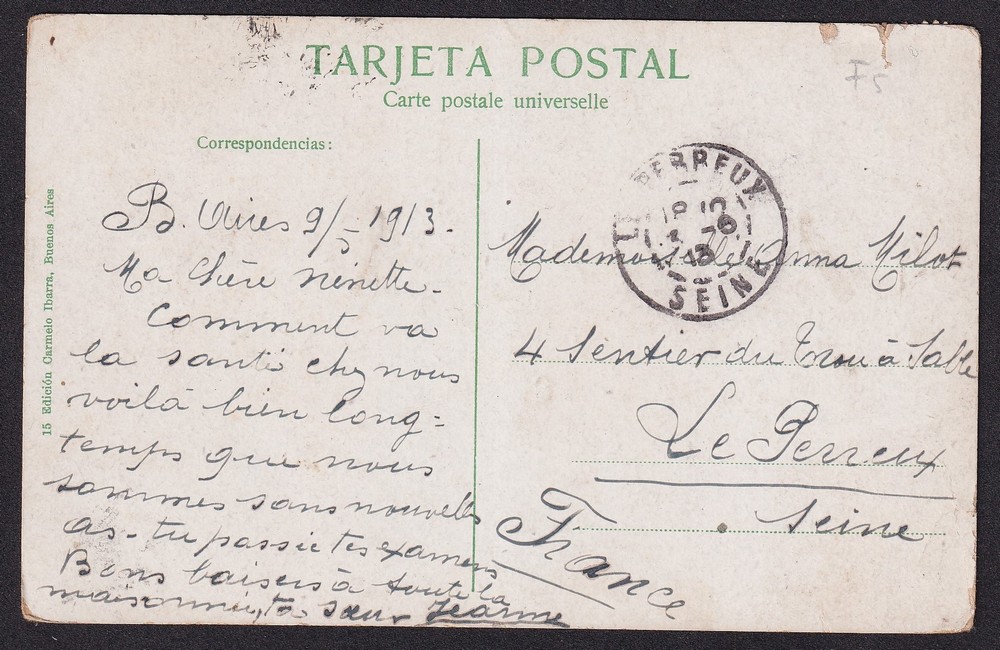 TARJETA POSTAL
Carte postale universelle
F5
Correspondencias:
15 Edición Carmelo Ibarra, Buenos Aires
B. Aires 9/5 1913.
Ma chère Nénette.
Comment va
la santé chez nous
voilà bien long=
temps que nous
sommes sans nouvelles
as-tu passée tes examens
Bons baisers à toute la
maisonnée, ta sœur Jeanne
PERREUX
SEINE
Mademoiselle Anna Milot
4 Sentier du Trou à Sable
Le Perreux
Seine
France